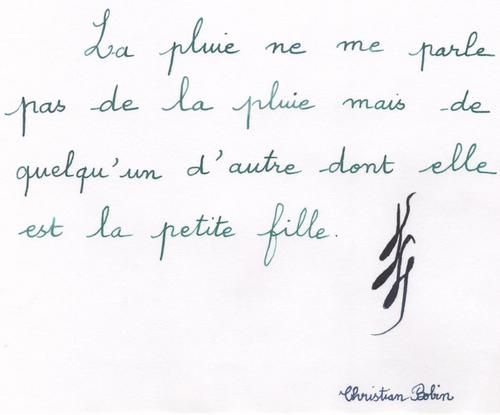 La pluie ne me parle
pas de la pluie mais de
quelqu'un d'autre dont elle
est la petite fille.
Christian Bobin